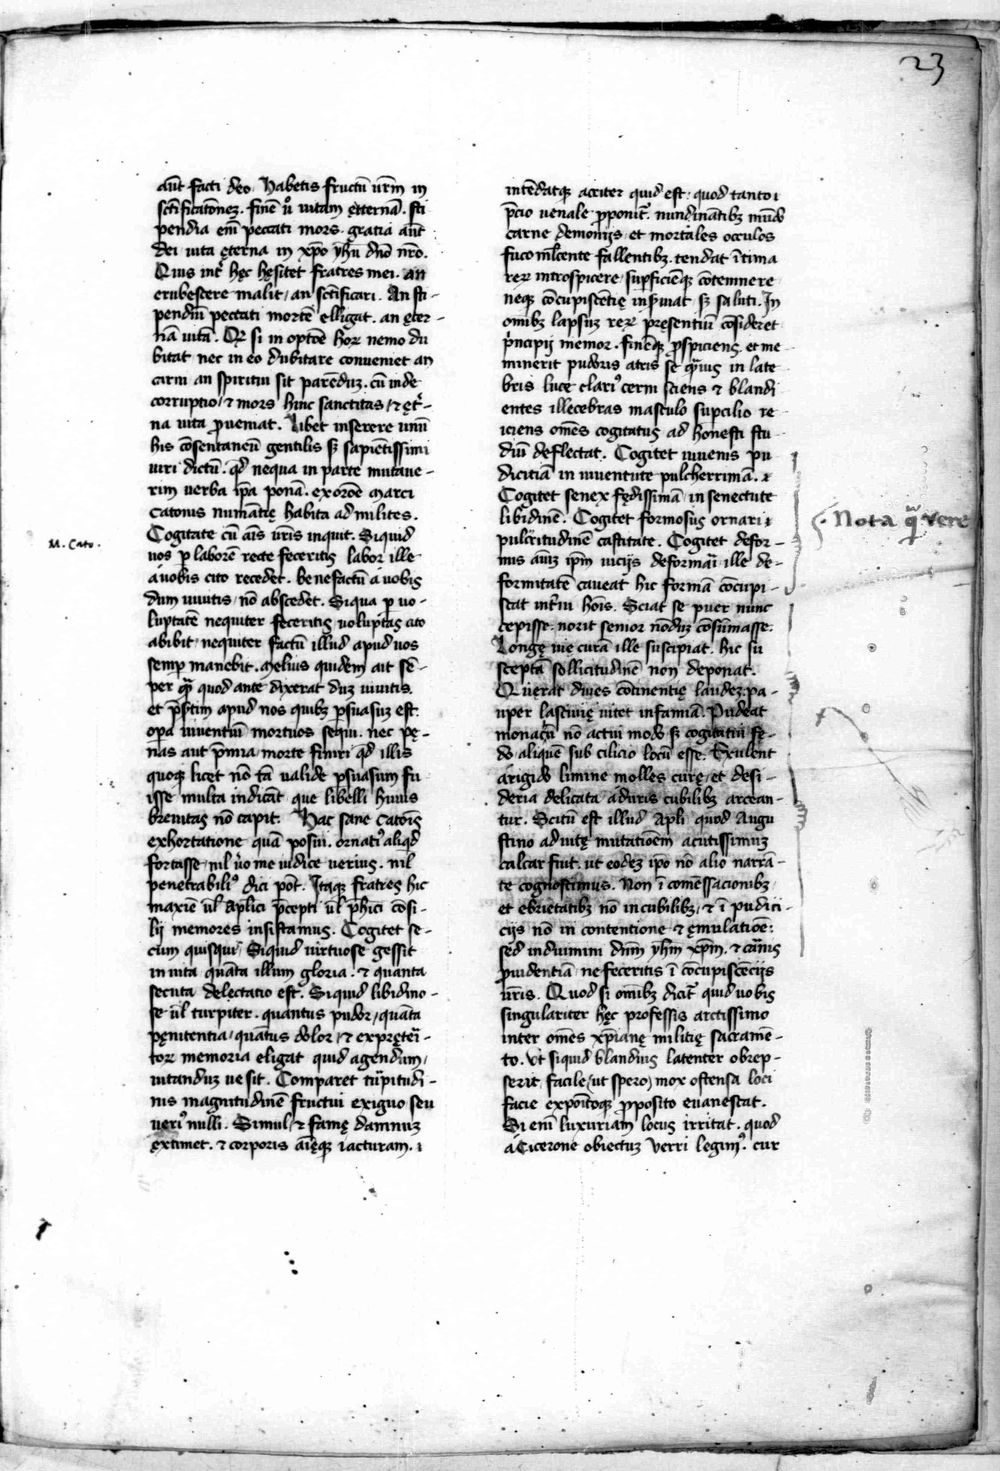 23
aūt facti deo. Habetis fructū ur̄m in
sctīficatōnez. finē u̾o uitam ęternā. sti
pendia em̄ peccati mors. gratia aūt
dei uita ęterna in xp̄o yhū dnō nr̄o.
Quis int̾ hęc hęsitet fratres mei. an
erubescere malit / an sctīficari. An sti-
pendiū peccati mortē elligat. an ęter-
nā uitā. Qꝫ si in optōe hoꝝ nemo du
bitat nec in eo dubitare conueniet an
carni an spiritui sit parēduz. cū inde
corruptio / ⁊ mors hinc sanctitas / ⁊ ęt̾-
na uita ꝓueniat. Libet inserere unū
his cōsentaneū gentilis sꝫ sapiētissimi
uiri dictū. qđ nequa in parte mutaue-
rim uerba ip̄a ponā. ex orōe Marci
Catonis numātię habita ad milites.
Cogitate cū aīs ur̄is inquit. Siquid
M. Cato.
uos ꝑ laborē recte feceritis labor ille
a uobis cito recedet. benefactū a uobis
dum uiuitis / nō abscedet. Siqua ꝑ uo-
luptatē nequiter feceritis uoluptas cito
abibit. nequiter factū illud apud uos
semꝑ manebit. Melius quidem ait sē-
per qꝫ quod ante dixerat duz uiuitis.
et p̄s̄tim apud nos quibꝫ ꝑsuasuz est.
oꝑa uiuentiū mortuos sequi. nec pę-
nas aut p̄mia / morte finiri qđ illis
quoqꝫ licet nō tā ualide ꝑsuasum fu
isse multa indicāt que libelli huius
breuitas nō capit. Hac sane Catōis
exhortatione quā posui. ornati᾽ aliqđ
fortasse / nil u̾o me iudice uerius. nil
penetrabili᾽ dici pōt. Itaqꝫ fratres hic
maxīe ūl aplīci p̄cepti ūl ꝓhīci cōsi-
lij memores insistamus. Cogitet se-
cum quisquis / Siquid uirtuose gessit
in uita quāta illum gloria. ⁊ quanta
secuta delectatio est. Siquid libidino-
se ūl turpiter. quantus pudor / quāta
pęnitentia / quātus dolor / ⁊ ex pręteī-
toꝝ memoria eligat quid agendum /
uitanduz ue sit. Comparet turpitudi-
nis magnitudinē fructui exiguo seu
ueri᾽ nulli. Simul / ⁊ famę damnuz
ęxtimet. ⁊ corporis aīęqꝫ iacturam. ⁊
intēdatqꝫ acriter quid est: quod tanto ⁊
p̄cio uenale ꝓponit᾽. nundinātibꝫ mūdo
carne demonijs / et mortales occulos
fuco mlcente fallentibꝫ. tendat ītima
reꝝ introspicere / suꝑficiēqꝫ cōtemnere
neqꝫ cōcupiscētię inẜuiat sꝫ saluti. In
omībꝫ lapsuz reꝝ presentiū cōsideret
pͥncipij memor. finēqꝫ ꝓspiciens. et me
minerit pudoris atqꝫ se qͣuis in late
bris luce clari᾽ cerni sciens ⁊ blandi
entes illecebras masculo suꝑcilio re
iciens omēs cogitatus ad honesti stu
diū deflectat. Cogitet iuuenis pu
dicitiā in iuuentute pulcherrimā. ⁊
Cogitet senex fędissimā in senectute
libidinē. Cogitet formosus ornari ⁊
Nota qͣ vere
pulcritudinē castitate. Cogitet defor-
mis aūz ip̄m uicijs deformaī ille de-
formitatē caueat hic formā cōcupi-
scat int̾iu hoīs. Sciat se puer nunc
cepisse. norit senior nōduz cōsūmasse.
Longę uię curā ille suscipiat. hic su
sceptā sollicitudinē non deponat.
Quęrat diues cōtinentię laudez. pa-
uper lasciuię uitet infamiā. Pudeat
monacū nō actui modo sꝫ cogitatui fę-
do aliquē sub cilicio locū esse. Exulent
a rigido limine molles curę / et desi-
deria delicata a duris cubilibꝫ arcean-
tur. Scitū est illud Apli quod Augu
stino ad uitę mutatiōem acutissimuz
calcar fuit. ut eodez ip̄o nō alio narrā-
te cognoscimus. Non ī comēssacionibꝫ
et ebrietatibꝫ nō in cubilibꝫ / ⁊ ī pudici-
cijs nō in contentione ⁊ ęmulatiōe:
sed induimini dnm̄ yhm̄ xp̄m. ⁊ carnis
ꝓuidentiā / ne feceritis ī cōcupiscēcijs
ur̄is. Quod si omībꝫ dicit᾽ quid uobis
singulariter hęc professis arctissimo
inter omēs xp̄ianę militię sacramē-
to. Vt siquid blandius latenter obrep-
serit / facile (ut spero) mox ostensa loci
facie expōitoqꝫ ꝓposito euanescat.
Si enī luxuriam locus irritat. quod
a Cicerone obiectuz Verri legim᾽. cur